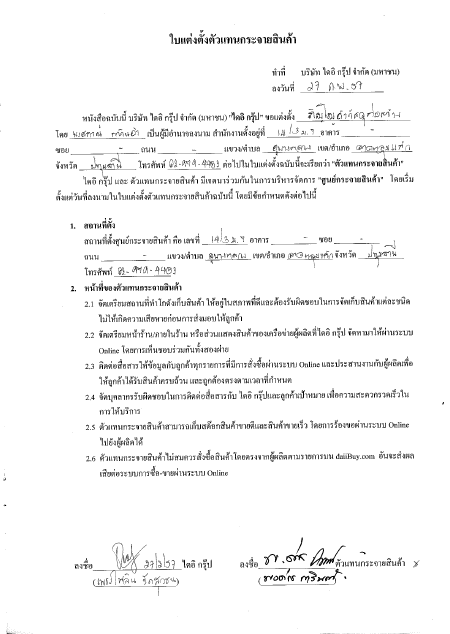 ใบแต่งตั้งตัวแทนกระจายสินค้า
ทำที่ บริษัท ไดอิ กรุ๊ป จำกัด (มหาชน)
ลงวันที่ 27 ก.พ. 57
หนังสือฉบับนี้ บริษัท ไดอิ กรุ๊ป จำกัด (มหาชน) "ไดอิ กรุ๊ป" ขอแต่งตั้ง
โดย เป็นผู้มีอำนาจลงนาม สำนักงานตั้งอยู่ที่ 14/3 ม.9 อาคาร -
ซอย - ถนน - แขวง/ตำบล เขต/อำเภอ
จังหวัด ปทุมธานี โทรศัพท์ ต่อไปในใบแต่งตั้งฉบับนี้จะเรียกว่า "ตัวแทนกระจายสินค้า"
ไดอิ กรุ๊ป และ ตัวแทนกระจายสินค้า มีเจตนาร่วมกันในการบริหารจัดการ "ศูนย์กระจายสินค้า" โดยเริ่ม
ตั้งแต่วันที่ลงนามในใบแต่งตั้งตัวแทนกระจายสินค้าฉบับนี้ โดยมีข้อกำหนดดังต่อไปนี้
1. สถานที่ตั้ง
สถานที่ตั้งศูนย์กระจายสินค้า คือ เลขที่ 14/3 ม.9 อาคาร - ซอย -
ถนน - แขวง/ตำบล เขต/อำเภอ จังหวัด ปทุมธานี
โทรศัพท์
2. หน้าที่ของตัวแทนกระจายสินค้า
2.1 จัดเตรียมสถานที่ทำโกดังเก็บสินค้า ให้อยู่ในสภาพที่ดีและต้องรับผิดชอบในการจัดเก็บสินค้าแต่ละชนิด
ไม่ให้เกิดความเสียหายก่อนการส่งมอบให้ลูกค้า
2.2 จัดเตรียมหน้าร้าน/ภายในร้าน หรือส่วนแสดงสินค้าของเครือข่ายผู้ผลิตที่ไดอิ กรุ๊ป จัดหามาให้ผ่านระบบ
Online โดยการเห็นชอบร่วมกันทั้งสองฝ่าย
2.3 ติดต่อสื่อสารให้ข้อมูลกับลูกค้าทุกรายการที่มีการสั่งซื้อผ่านระบบ Online และประสานงานกับผู้ผลิตเพื่อ
ให้ลูกค้าได้รับสินค้าครบถ้วน และถูกต้องตรงตามเวลาที่กำหนด
2.4 จัดบุคลากรรับผิดชอบในการติดต่อสื่อสารกับ ไดอิ กรุ๊ปและลูกค้าเป้าหมาย เพื่อความสะดวกรวดเร็วใน
การให้บริการ
2.5 ตัวแทนกระจายสินค้าสามารถเก็บสต๊อกสินค้าขายดีและสินค้าขายเร็ว โดยการร้องขอผ่านระบบ Online
ไปยังผู้ผลิตได้
2.6 ตัวแทนกระจายสินค้าไม่สมควรสั่งซื้อสินค้าโดยตรงจากผู้ผลิตตามรายการบน daiiBuy.com อันจะส่งผล
เสียต่อระบบการซื้อ-ขายผ่านระบบ Online
ลงชื่อ 27/2/57 ไดอิ กรุ๊ป ลงชื่อ ตัวแทนกระจายสินค้า